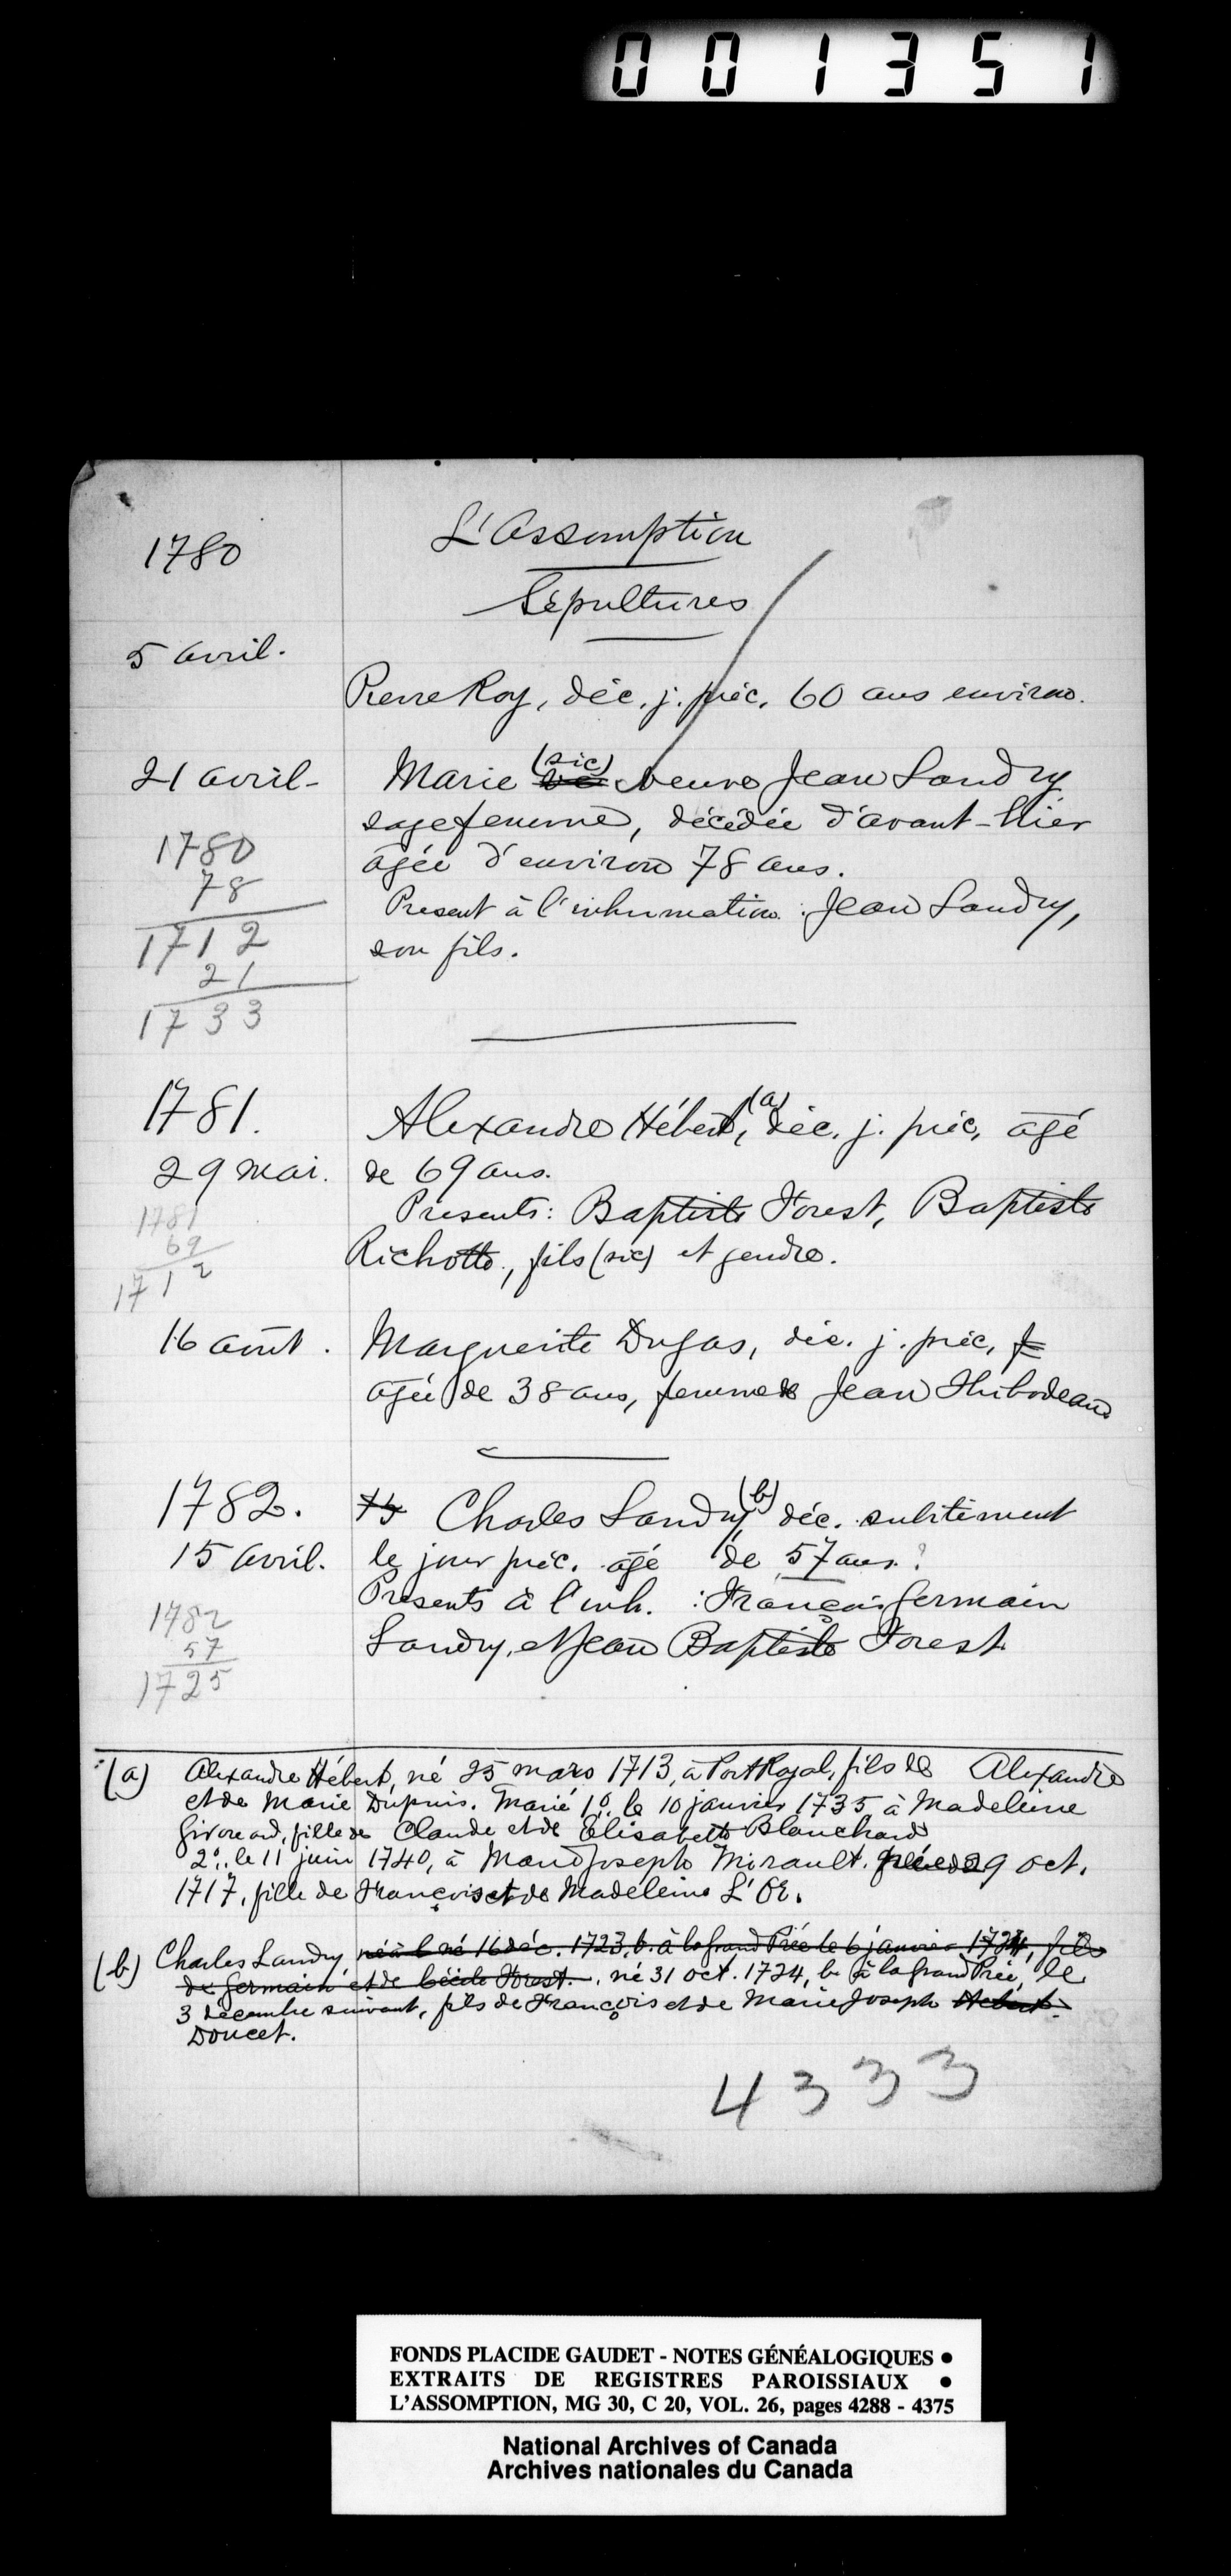 001351
L'Assomption
1780
Sépultures
5 avril.
Pierre Roy, déc. j. préc. 60 ans environ.
21 avril - Marie (sic) veuve Jean Landry
sagefemme, décédée d'avant-hier
1780
âgée d'environ 78 ans.
78
Present à l'inhumation : Jean Landry,
1712
son fils.
21
1733
1781. Alexandre Hébert, (a) déc. j. préc. âgé
29 mai. de 69 ans.
1781
Presents: Baptiste Forest, Baptiste
69
Richotte, fils (sic) et gendre.
1712
16 août. Marguerite Dugas, déc. j. préc,
âgée de 38 ans, femme de Jean Thibodeau
1782. Charles Landry, (b) déc. subitement
15 avril. le jour préc. âgé de 57 ans ?
Présents à l'inh. : François Germain
1782
57
Landry, et Jean Baptiste Forest
1725
(a) Alexandre Hébert, né 25 mars 1713, à Port Royal, fils de Alexandre
et de Marie Dupuis. Marié 1º. le 10 janvier 1735 à Madeleine
Girouard, fille de Claude et de Elisabeth Blanchard
2º. le 11 juin 1740, à Marie Joseph Mirault. née 29 oct.
1717, fille de François et de Madeleine L'Or.
(b) Charles Landry, né à b né 16 déc. 1723, b. à la grand Prée le 6 janvier 1724, fils
de Germain et de Cécile Forest. né 31 oct. 1724, b. à la grand Prée, le
3 decembre suivant, fils de François et de Marie Joseph Hebert
Doucet.
4333
FONDS PLACIDE GAUDET - NOTES GÉNÉALOGIQUES •
EXTRAITS DE REGISTRES PAROISSIAUX •
L'ASSOMPTION, MG 30, C 20, VOL. 26, pages 4288 - 4375
National Archives of Canada
Archives nationales du Canada